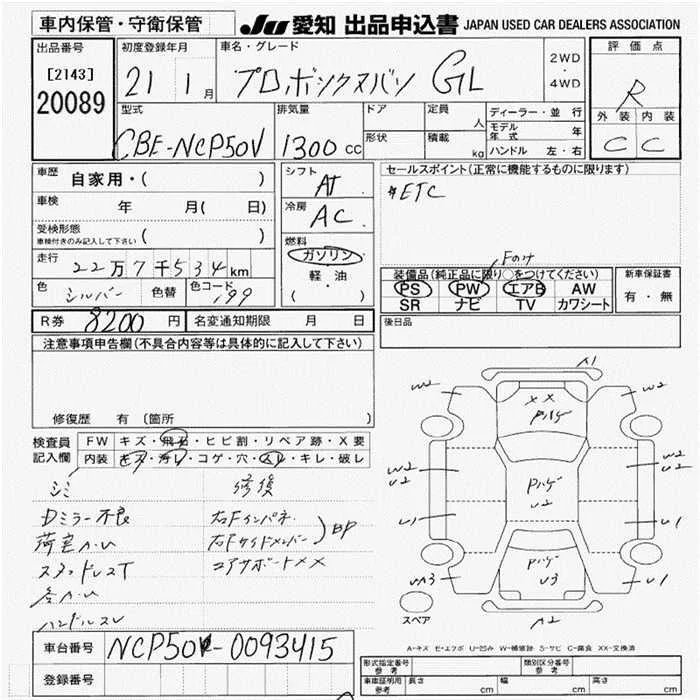 車内保管・守衛保管
JU 愛知 出品申込書 JAPAN USED CAR DEALERS ASSOCIATION
出品番号
[2143]
20089
初度登録年月
21 1月
車名・グレード
プロボックスバン GL
2WD
・
4WD
評価点
R
外装 内装
C C
型式
CBE-NCP50V
排気量
1300 CC
ドア
形状
定員 人
積載 kg
ディーラー・並行
モデル年式 年
ハンドル 左・右
車歴 自家用・( )
車検 年 月( 日)
受検形態 ( )
車検付きのみ記入して下さい
走行 22万7千534km
色 シルバー 色替 色コード 199
シフト AT
冷房 AC
燃料
ガソリン
軽・油
( )
セールスポイント(正常に機能するものに限ります)
#ETC
Fのみ
装備品(純正品に限り○をつけてください)
PS PW エアB AW
SR ナビ TV カワシート
新車保証書
有・無
R券 8200 円 名変通知期限 月 日
後日品
注意事項申告欄(不具合内容等は具体的に記入して下さい)
修復歴 有 (箇所 )
検査員記入欄
FW キズ・飛石・ヒビ割・リペア跡・X要
内装 キズ・汚レ・コゲ・穴・スレ・キレ・破レ
シミ
Dミラー不良
荷室カバい
スタッドレスT
ハンドルスレ
修復
右Fインパネ
右Fサイドメンバー
BP
コアサポートXX
A1
W2
W2
XX
Pハゲ
W2
U2
Pハゲ
U2
W2
U2
U1
U1
Pハゲ
U3
UA3
U1
スペア
A2
A-キズ E-エクボ U-凹み W-補修跡 S-サビ C-腐食 XX-交換済
車台番号 NCP50V-0093415
登録番号
形式指定番号 参考
類別区分番号 参考
車庫証明用 参考 長さ cm 幅 cm 高さ cm